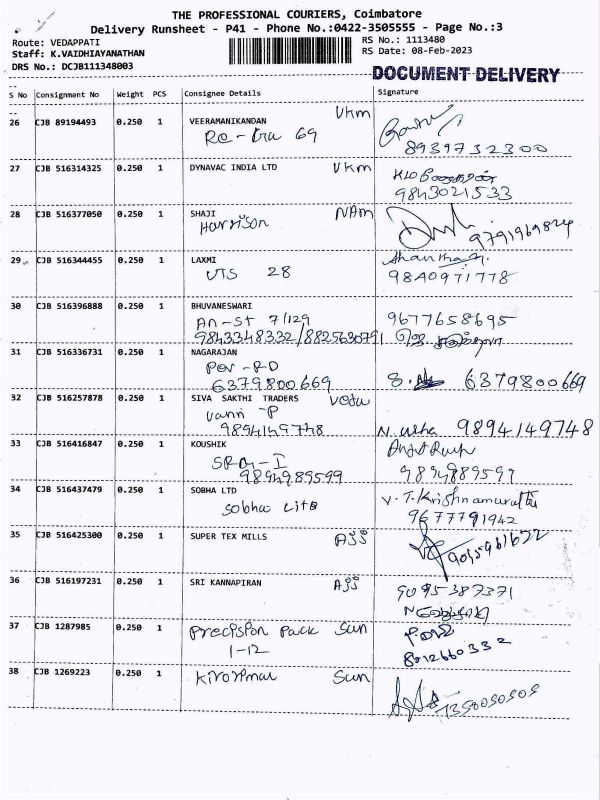 THE PROFESSIONAL COURIERS, Coimbatore
Delivery Runsheet - P41 - Phone No.:0422-3505555 - Page No.:3
Route: VEDAPPATI RS No.: 1113480
Staff: K.VAIDHIAYANATHAN RS Date: 08-Feb-2023
DRS No.: DCJB111348003
DOCUMENT DELIVERY
S No Consignment No Weight PCS Consignee Details Signature
26 CJB 89194493 0.250 1 VEERAMANIKANDAN Vkm
69
8939732300
27 CJB 516314325 0.250 1 DYNAVAC INDIA LTD Vkm
9843021533
28 CJB 516377050 0.250 1 SHAJI NAm
Harrison 9791969824
29 CJB 516344455 0.250 1 LAXMI
UTS 28 9840971778
30 CJB 516396888 0.250 1 BHUVANESWARI
An-St 7/129 9677658695
9843348332/8825630791
31 CJB 516336731 0.250 1 NAGARAJAN
Per-RD
6379800669 6379800669
32 CJB 516257878 0.250 1 SIVA SAKTHI TRADERS
Vanni -P
9894149748 N. Usha 9894149748
33 CJB 516416847 0.250 1 KOUSHIK
SRG-I
9894989599
34 CJB 516437479 0.250 1 SOBHA LTD V. T. Krishnamurathi
Sobha Lite 9677791942
35 CJB 516425300 0.250 1 SUPER TEX MILLS Ajj
36 CJB 516197231 0.250 1 SRI KANNAPIRAN Ajj
9095387371
37 CJB 1287985 0.250 1 Precision Pack Sun
1-12 8012660332
38 CJB 1269223 0.250 1 Sun